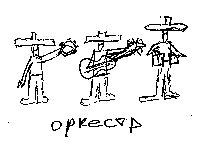 оркестр